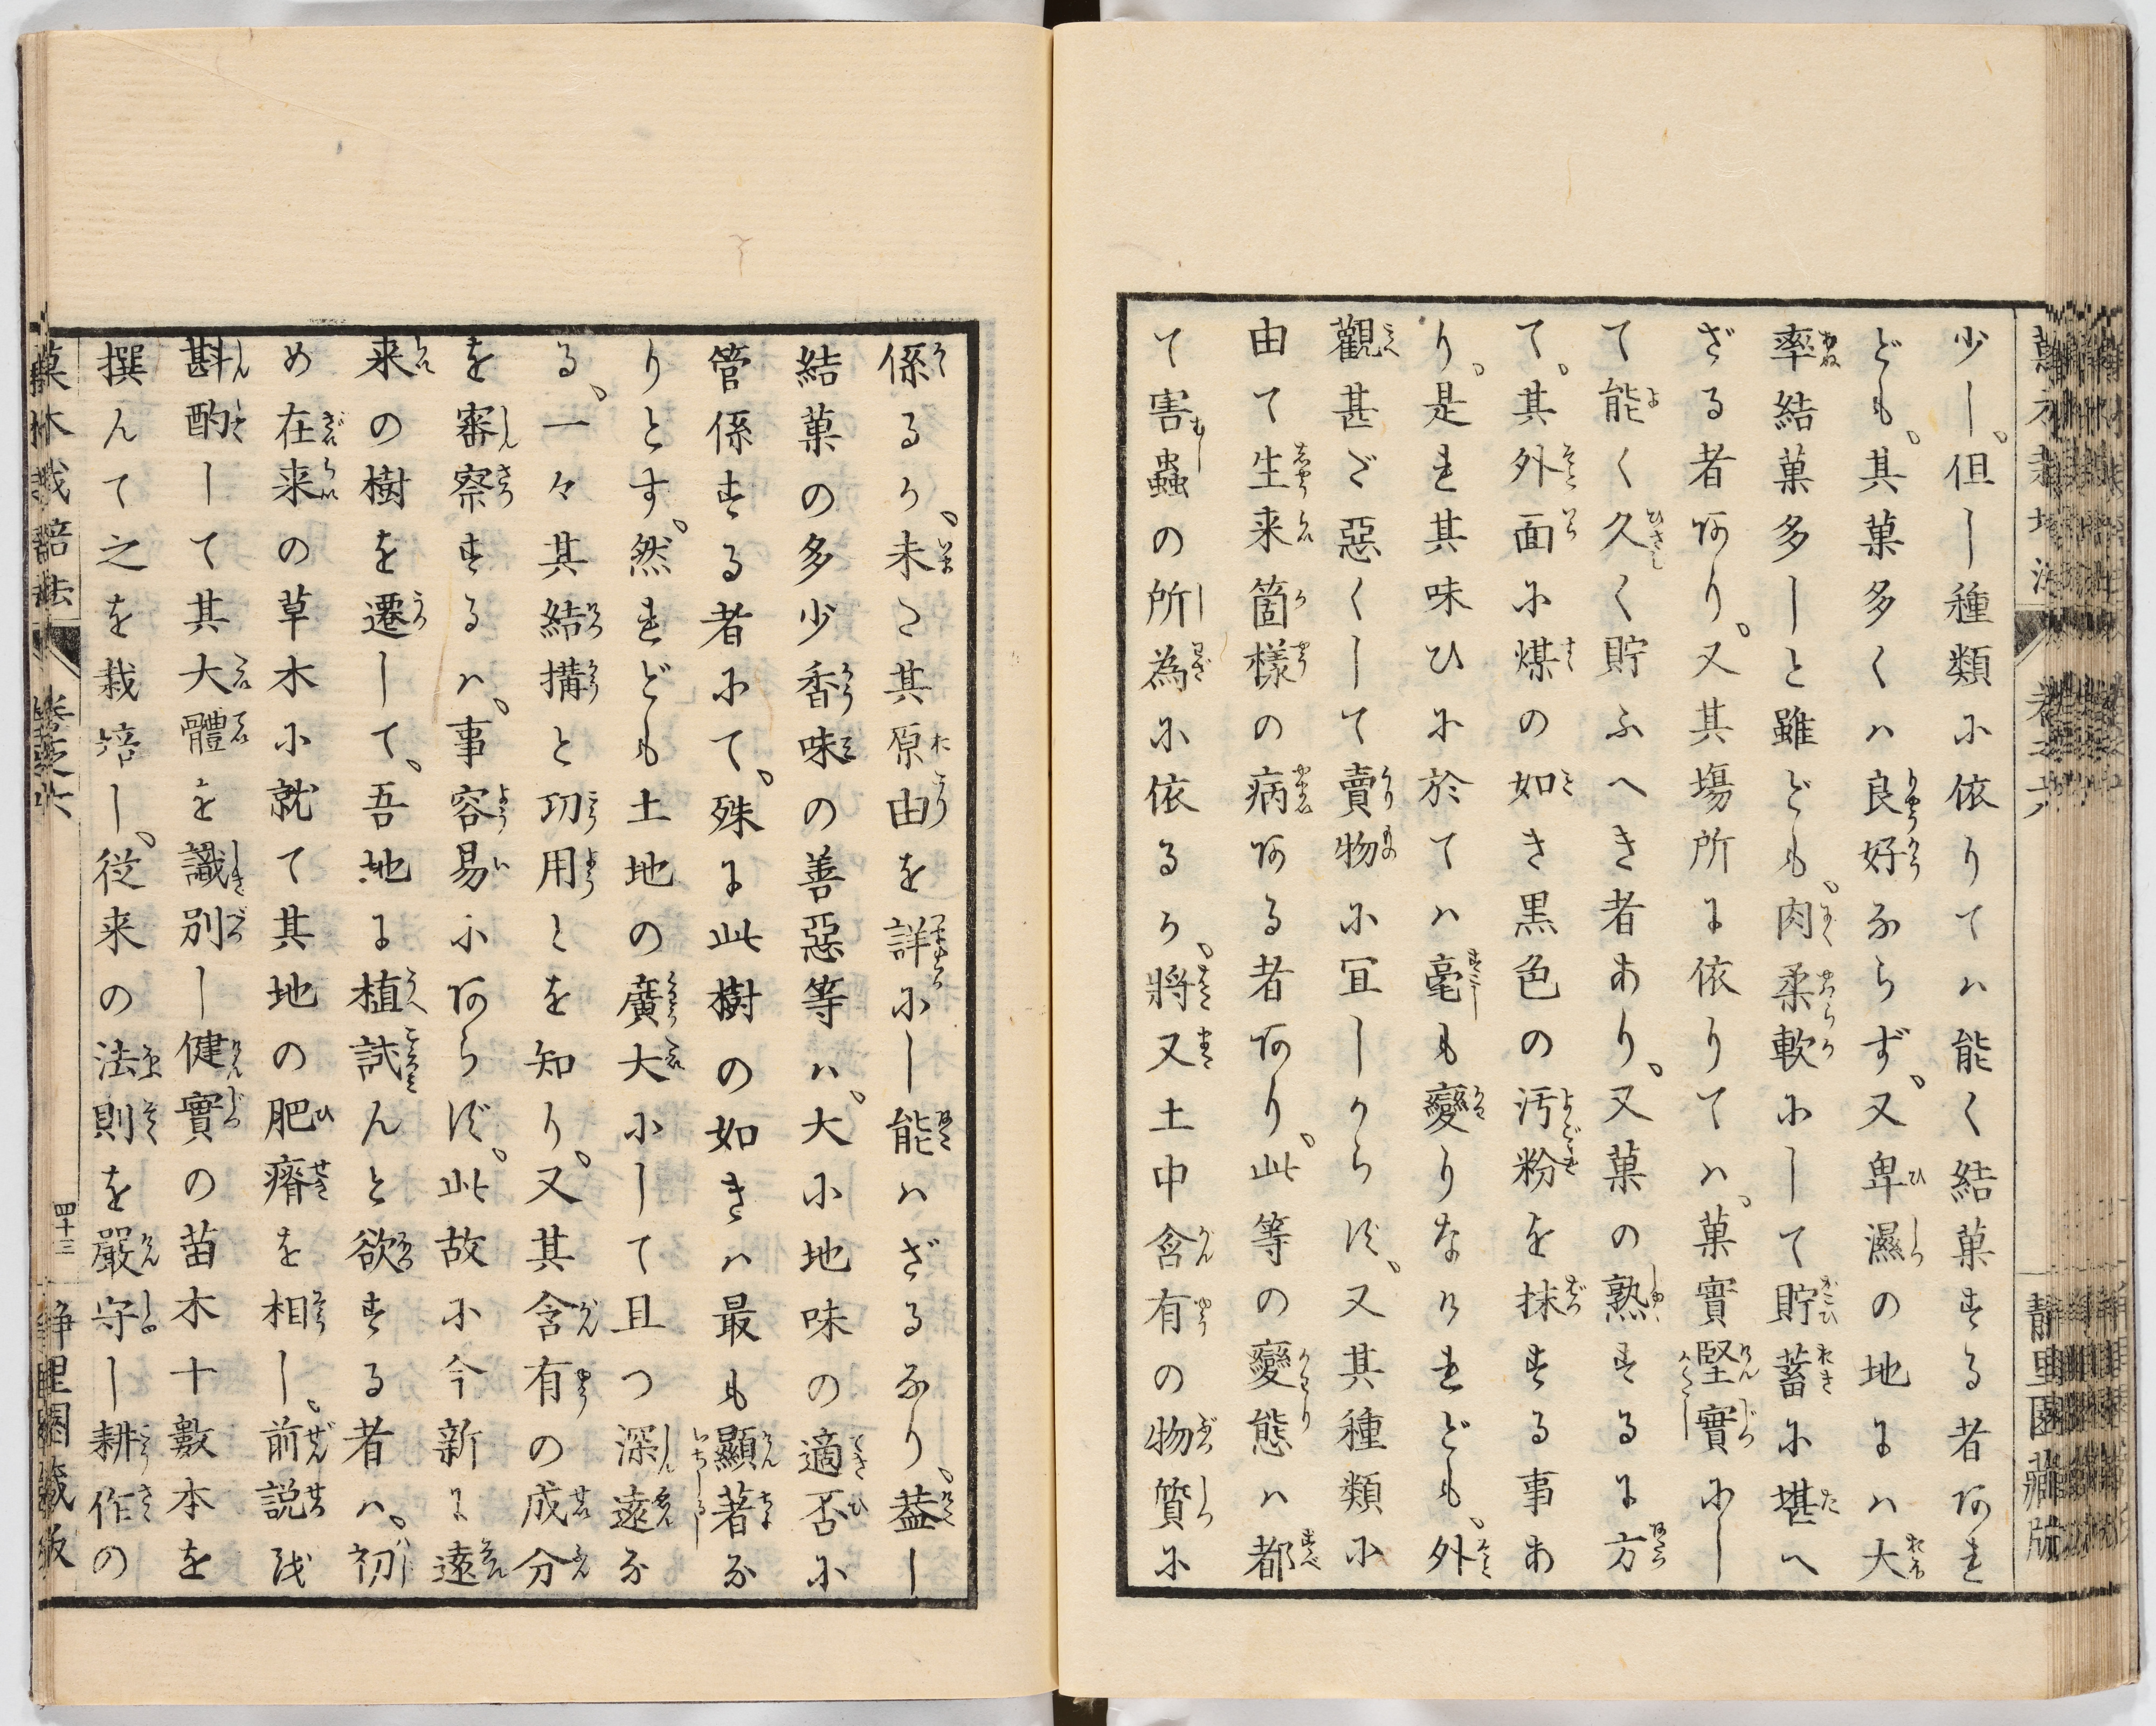 少し。但し種類に依りては能く結菓する者あれ
ども。其菓多くは良好ならず。又卑濕の地には大
率結菓多しと雖ども。肉柔軟にして貯蓄に堪へ
ざる者あり。又其塲所に依りては。菓實堅實にし
て能く久く貯ふへき者あり。又菓の熟するに方
て。其外面に煤の如き黒色の汚粉を抹する事あ
り。是れ其味ひに於ては毫も變りなけれども。外
觀甚だ惡くして賣物に宜しからず。又其種類に
由て生来箇様の病ある者あり。此等の變態は都
て害蟲の所為に依るか。將又土中含有の物質に
係るか。未た其原由を詳にし能はざるなり。葢し
結菓の多少香味の善惡等は。大に地味の適否に
管係する者にて。殊に此樹の如きは最も顯著な
りとす。然れども土地の廣大にして且つ深遠な
る。一々其結搆と功用とを知り。又其含有の成分
を審察するは。事容易にあらず。此故に今新に遠
来の樹を遷して。吾地に植試んと欲する者は。初
め在来の草木に就て其地の肥瘠を相し。前説を
斟酌して其大體を識別し健實の苗木十數本を
撰んて之を栽培し。従来の法則を嚴守し耕作の
菓木栽培法
卷之六
四十三
静里園藏版